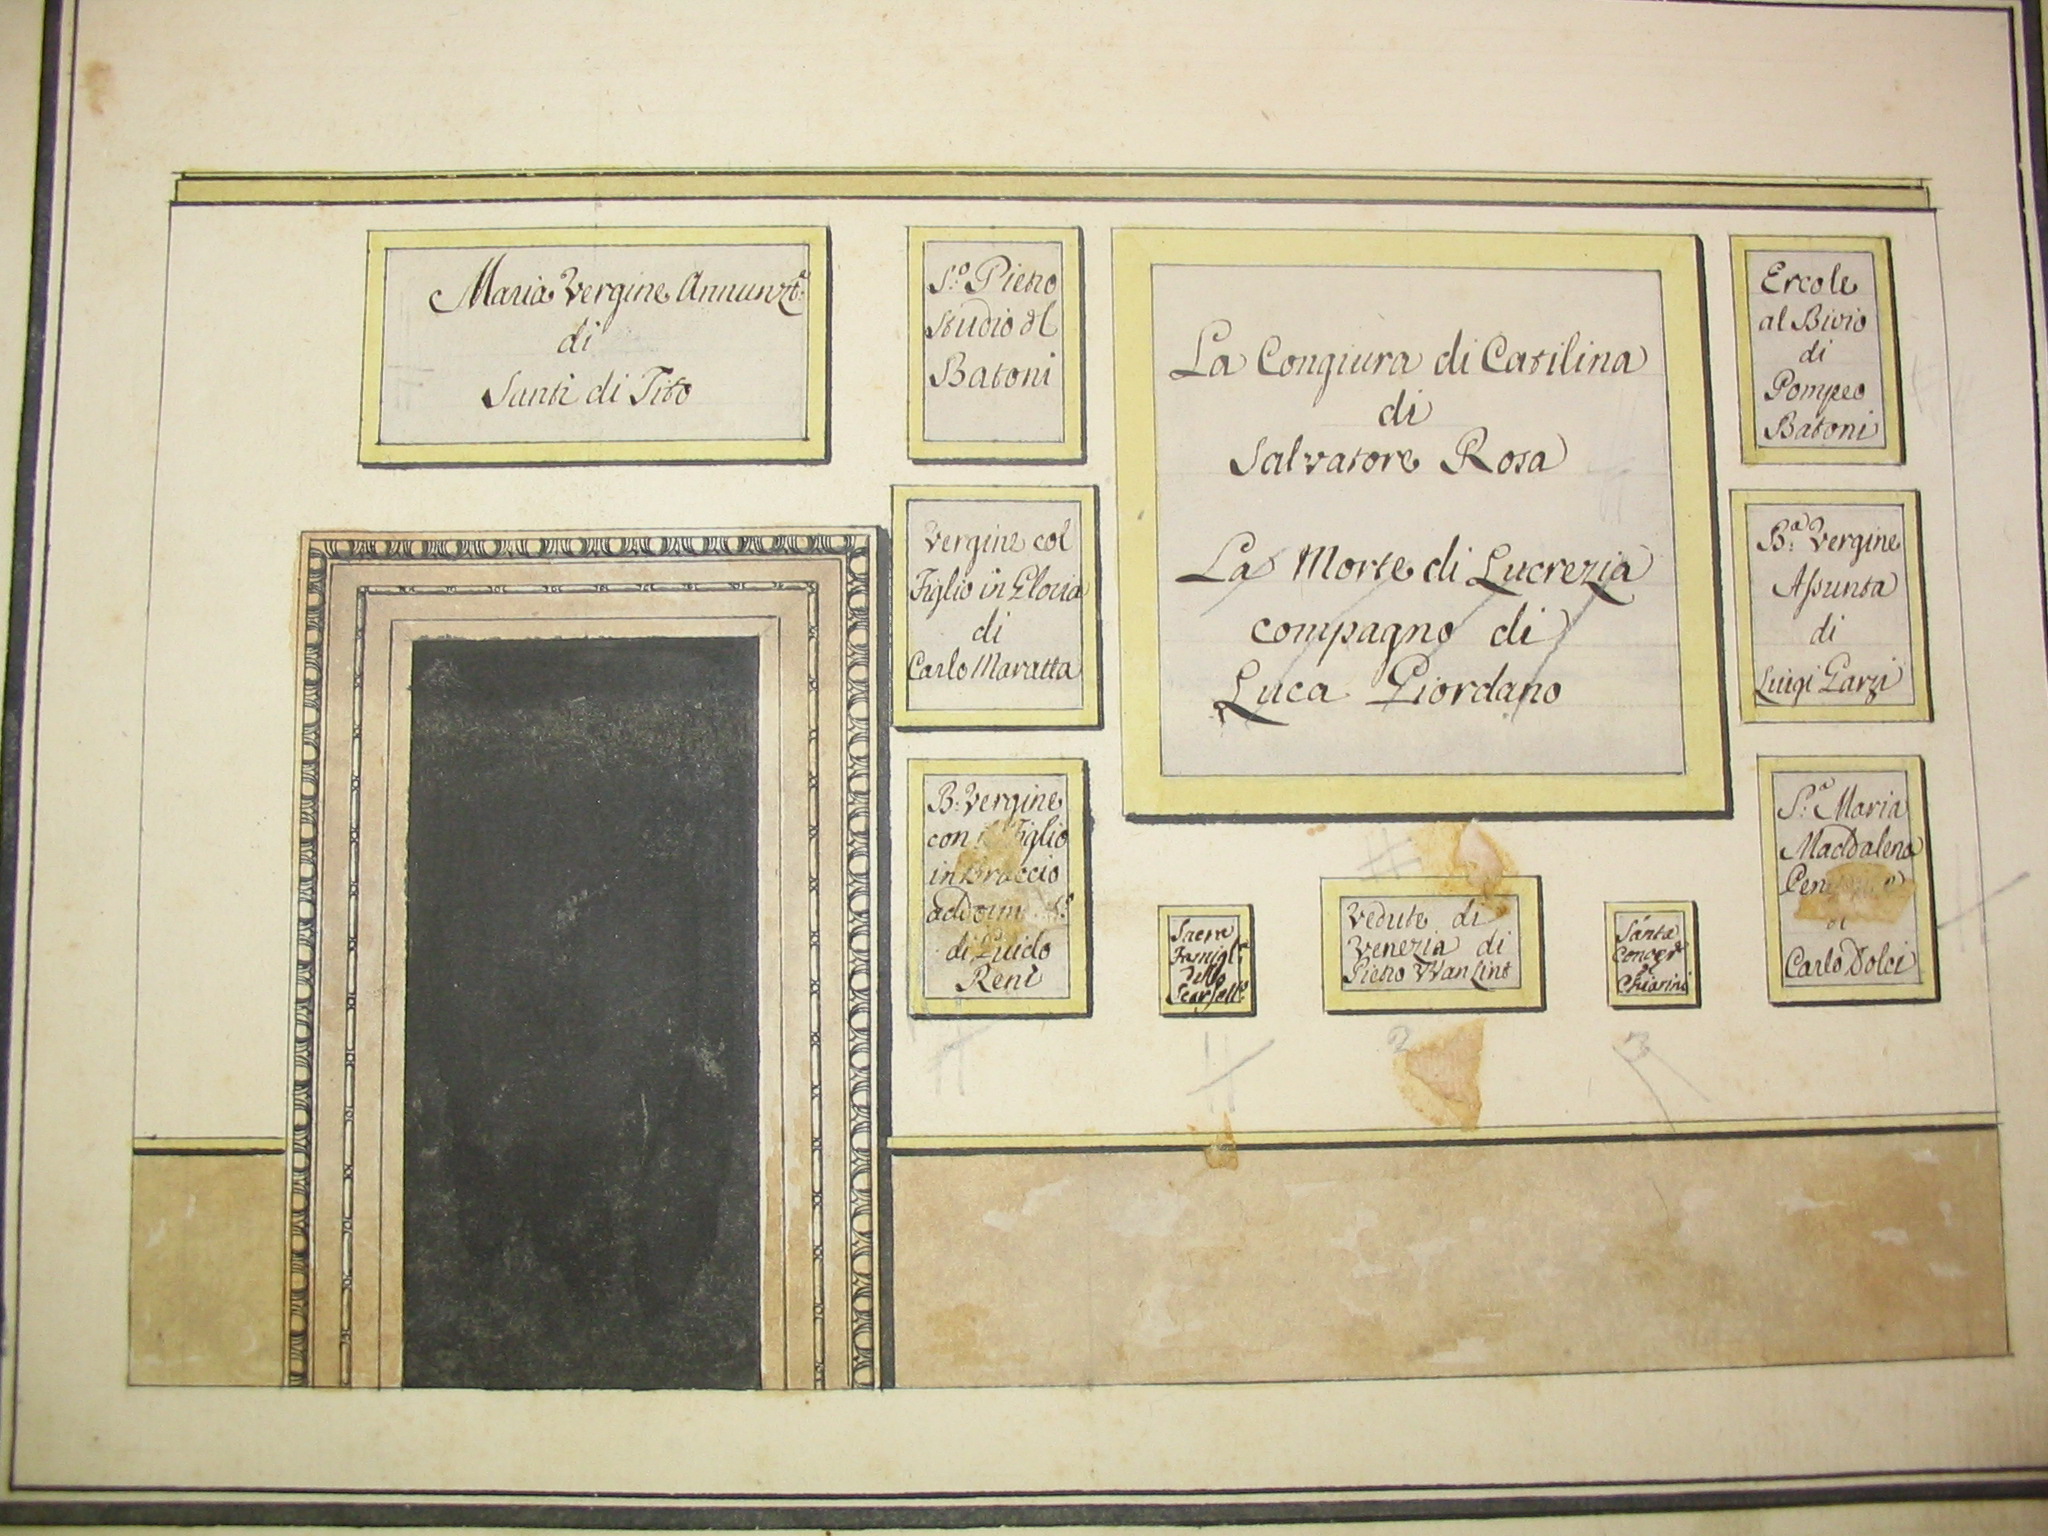 Maria Vergine Annunzt.ª
di
Santi di Tito
S.º Pietro
Studio dl
Batoni
La Congiura di Catilina
di
Salvatore Rosa
La Morte di Lucrezia
compagno di
Luca Giordano
Ercole
al Bivio
di
Pompeo
Batoni
Vergine col
Figlio in Gloria
di
Carlo Maratta
B.ª Vergine
Assunta
di
Luigi Garzi
B. Vergine
con il Figlio
in Braccio
di Guido
Reni
Sacra
Famigl.ª
dello
Vedute di
Venezia di
Pietro VVanLint
Santa
Concez.
di
Chiarini
S.ª Maria
Maddalena
di
Carlo Dolci
2
3